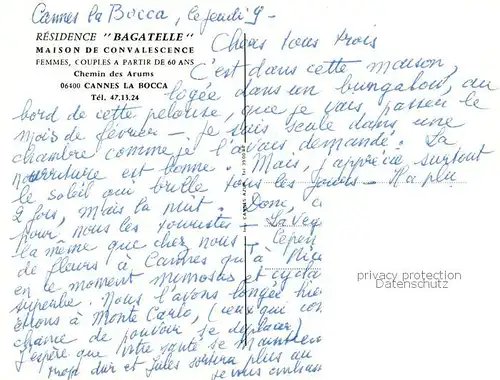 Cannes la Bocca, le jeudi 9 -
RÉSIDENCE "BAGATELLE"
MAISON DE CONVALESCENCE
FEMMES, COUPLES A PARTIR DE 60 ANS
Chemin des Arums
06400 CANNES LA BOCCA
Tél. 47.13.24
Chers tous trois
C'est dans cette maison,
logée dans un bungalow, au
bord de cette pelouse, que je vais passer le
mois de février - je suis seule dans une
chambre comme je l'avais demandé. La
nourriture est bonne. Mais, j'apprécie surtout
le soleil qui brille tous les jours - Il a plu
2 fois, mais la nuit. Donc,
pour nous les touristes - La
la même que chez nous -
de fleurs à Cannes qu'à Nice
en ce moment mimosas et
superbe. Nous l'avons longée hier
étions à Monte Carlo, (ceux qui
chance de pouvoir se déplacer)
J'espère que votre santé se maintien
dur et Jules sortira plus au
je vous embrasse
privacy protection
Datenschutz